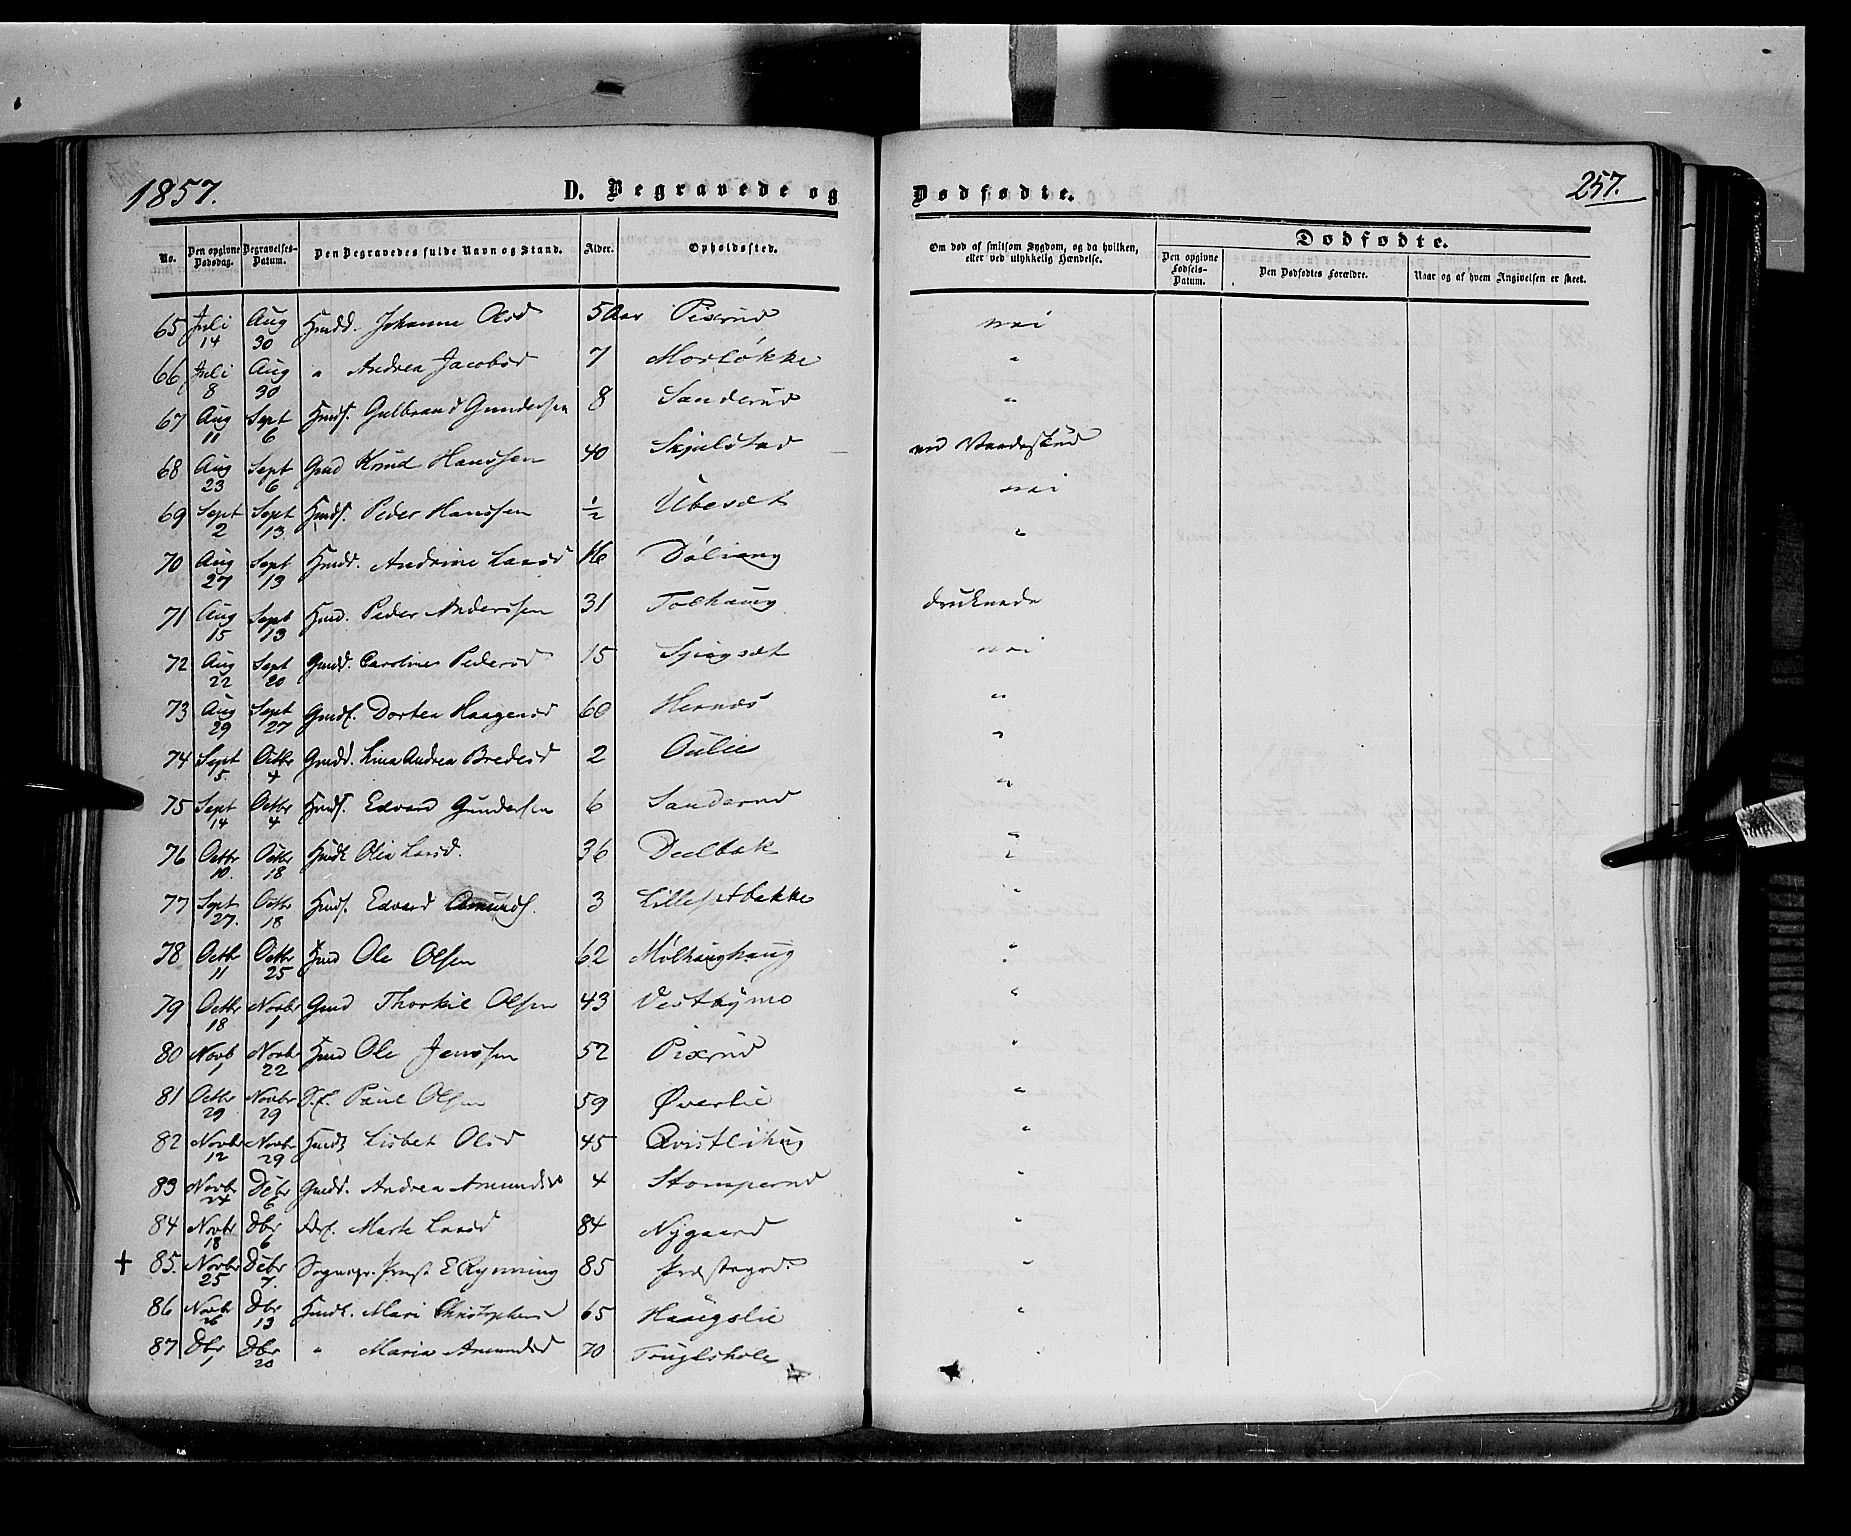 1857.
D. Begravede og
Dødfødte.
257.
No.
Den opgivne Dødsdag.
Begravelses-Datum.
Den Begravedes fulde Navn og Stand.
Alder.
Opholdssted.
Om død af smitsom Sygdom, og da hvilken, eller ved ulykkelig Hændelse.
Dødfødte.
Den opgivne Fødsels-Datum.
Den Dødfødtes Forældre.
Naar og af hvem Angivelsen er skeet.
65 Juli 14 Aug 30 Husmd. Johanne Olsd 5 Aar Pixrud nei
66 Juli 8 Aug 30 " Andrea Jacobsd 7 Morløkke "
67 Aug 11 Sept 6 Gulbrand Gundersen 8 Sanderud "
68 Aug 23 Sept 6 Gmd Knud Hanssen 40 Skjelstad ved Vaadeskud
69 Sept 2 Sept 13 Peder Hanssen ½ Ubesæt nei
70 Aug 27 Sept 13 Andrine Larsd 16 "
71 Aug 15 Sept 13 Peder Anderssen 31 Tolhaug druknede
72 Aug 22 Sept 20 Gmdd. Caroline Pedersd 15 nei
73 Aug 29 Sept 27 Dortea Haagensd 60 Hernes "
74 Sept 5. Octbr 4 Gmdd. Lina Andrea Bredesd 2 Aulie "
75 Sept 14 Octbr 4 Edvard Gundersen 6 Sanderud "
76 Octbr 10. Octbr 18 Olia Larsd. 36 Deelbak "
77 Sept 27. Octbr 18 Edvard 3 "
78 Octbr 11 Octbr 25 Ole Olsen 62 Mølhaughaug "
79 Octbr 18 Novbr 1 Gmd Thorkil Olsen 43 "
80 Novb 1 Novbr 22 Ole Jenssen 52 Pixrud "
81 Octbr 29 Novbr 29 Paul Olsen 59 Øverlie "
82 Novbr 12 Novbr 29 Lisbet Olsd 45 "
83 Novbr 24 Debr 6 Gmdd. Andrea Amundsd 4 Stomperud "
84 Novbr 18 Dbr 6 Marte Larsd 84 Nygaard "
+ 85. Novbr 25 Debr 7. Sognepr. E Rynning 85 Præstegrd. "
86 Novbr 26 Dbr 13 Mari Christophersd 65 Haugslie "
87 Dbr 1 Dbr 20 " Maria Amundsd 70